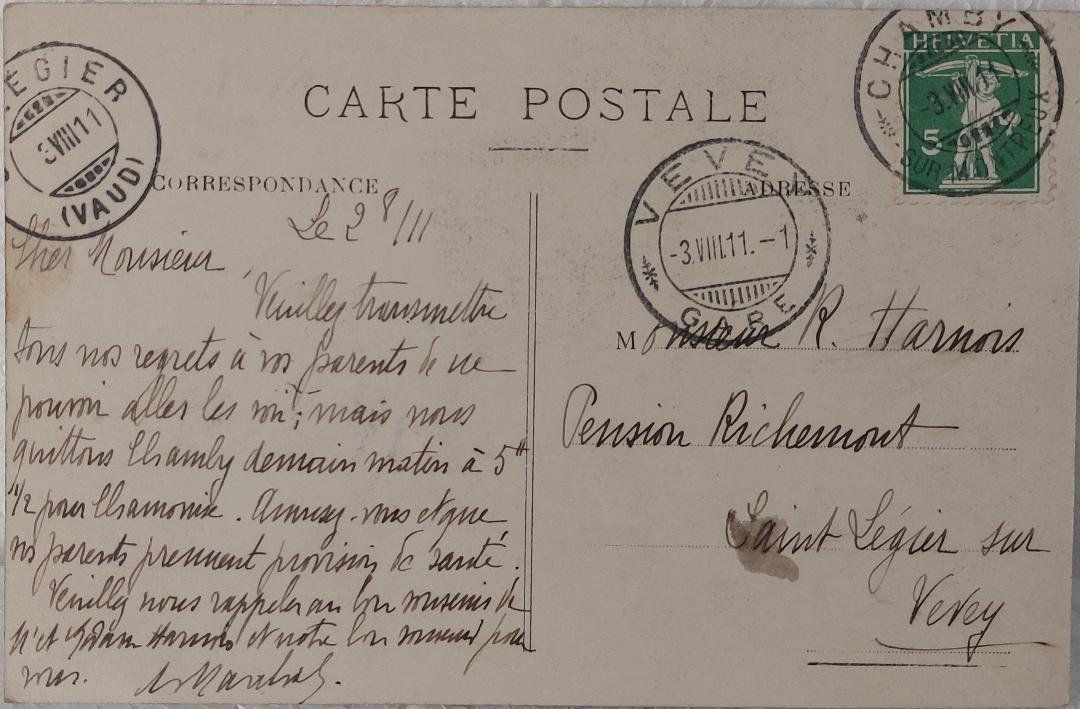 CARTE POSTALE
CORRESPONDANCE
ADRESSE
LEGIER
3 VIII 11
(VAUD)
VEVEY
-3.VIII.11.-1
GARE
CHAMBY
-3.VIII.11
SUR MONTREUX
HELVETIA
5
Le 2 8/11
Cher Monsieur,
Veuillez transmettre
tous nos regrets à vos parents de ne
pouvoir aller les voir; mais nous
quittons Chamby demain matin à 5 H
1/2 pour Chamonix. Amusez-vous et que
vos parents prennent provision de santé.
Veuillez nous rappeler au bon souvenir de
Mr et Madame Harnois et notre bon souvenir pour
vous.
Monsieur R. Harnois
Pension Richemont
Saint Légier sur
Vevey